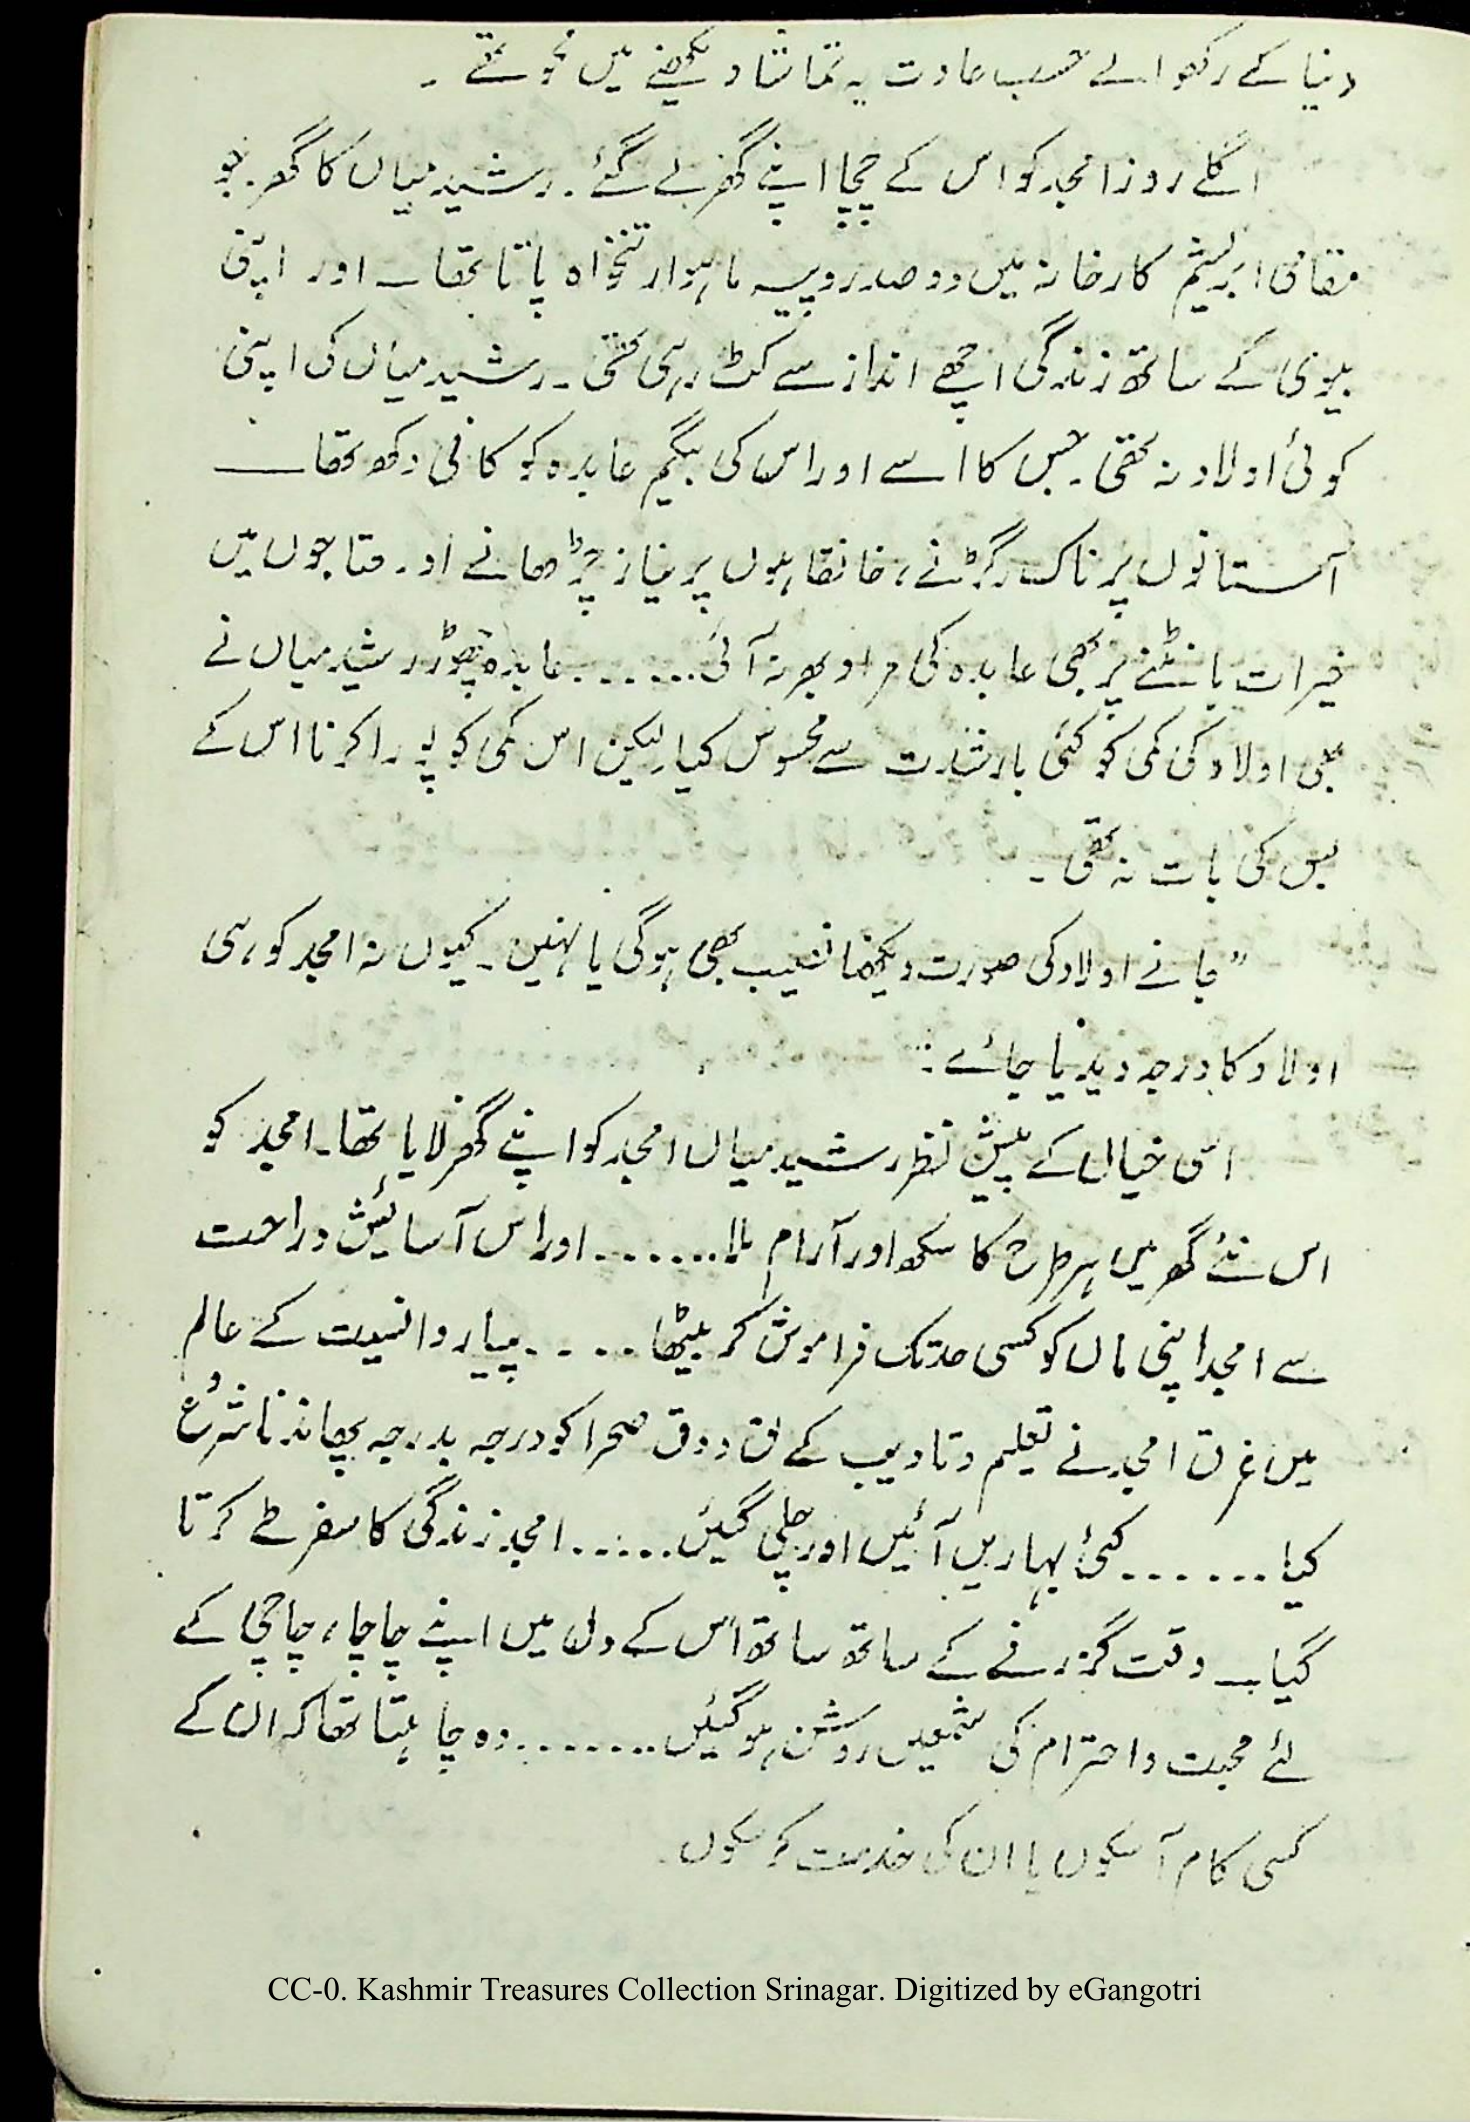 دنیا کے رکھوالے حسب عادت یہ تماشا دیکھنے میں محو تھے ۔
اگلے روز امجد کو اس کے چچا اپنے گھر لے گئے ۔ رشید میاں کا گھر ۔ جو
مقامی ابریشم کارخانہ میں دو صد روپیہ ماہوار تنخواہ پاتا تھا ــ اور اپنی
بیوی کے ساتھ زندگی اچھے انداز سے کٹ رہی تھی ۔ رشید میاں کی اپنی
کوئی اولاد نہ تھی ۔ جس کا اسے اور اس کی بیگم عابدہ کو کافی دکھ تھا ــ
آستانوں پر ناک رگڑنے ، خانقاہوں پر نیاز چڑھانے اور محتاجوں میں
خیرات بانٹنے پر بھی عابدہ کی مراد بھر نہ آئی....... عابدہ چھوڑ رشید میاں نے
بھی اولاد کی کمی کو کئی بار شدت سے محسوس کیا لیکن اس کمی کو پورا کرنا اس کے
بس کی بات نہ تھی ۔
” جانے اولاد کی صورت دیکھنا نصیب بھی ہوگی یا نہیں ۔ کیوں نہ امجد کو ہی
اولاد کا درجہ دیدیا جائے :
اسی خیال کے پیش نظر رشید میاں امجد کو اپنے گھر لایا تھا ۔ امجد کو
اس نئے گھر میں ہر طرح کا سکھ اور آرام ملا....... اور اس آسائیش و راحت
سے امجد اپنی ماں کو کسی حد تک فراموش کر بیٹھا ..... پیار و انسیت کے عالم
میں غرق امجد نے تعلیم و تادیب کے لق و دق صحرا کو درجہ بدرجہ پھاندنا شروع
کیا ...... کئی بہاریں آئیں اور چلی گئیں...... امجد زندگی کا سفر طے کرتا
گیا ــ وقت گزرنے کے ساتھ ساتھ اس کے دل میں اپنے چاچا ، چاچی کے
لئے محبت و احترام کی شمعیں روشن ہو گئیں ....... وہ چاہتا تھا کہ ان کے
کسی کام آ سکوں یا ان کی خدمت کر سکوں ۔
CC-0. Kashmir Treasures Collection Srinagar. Digitized by eGangotri